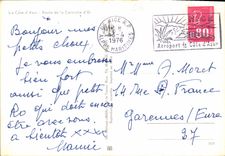 La Côte d'Azur - Route de la Corniche d'Or
Bonjour mes
petits choux
Je vous embrasse
bien fort
aussi que petit
qui doit encore
être avec vous.
à bientôt xxx
Mamie
NICE
1976
ALPES MARITIMES
Aéroport Côte d'Azur
80
Mme A. Moret
14 Rue A. France
Garennes/Eure
27